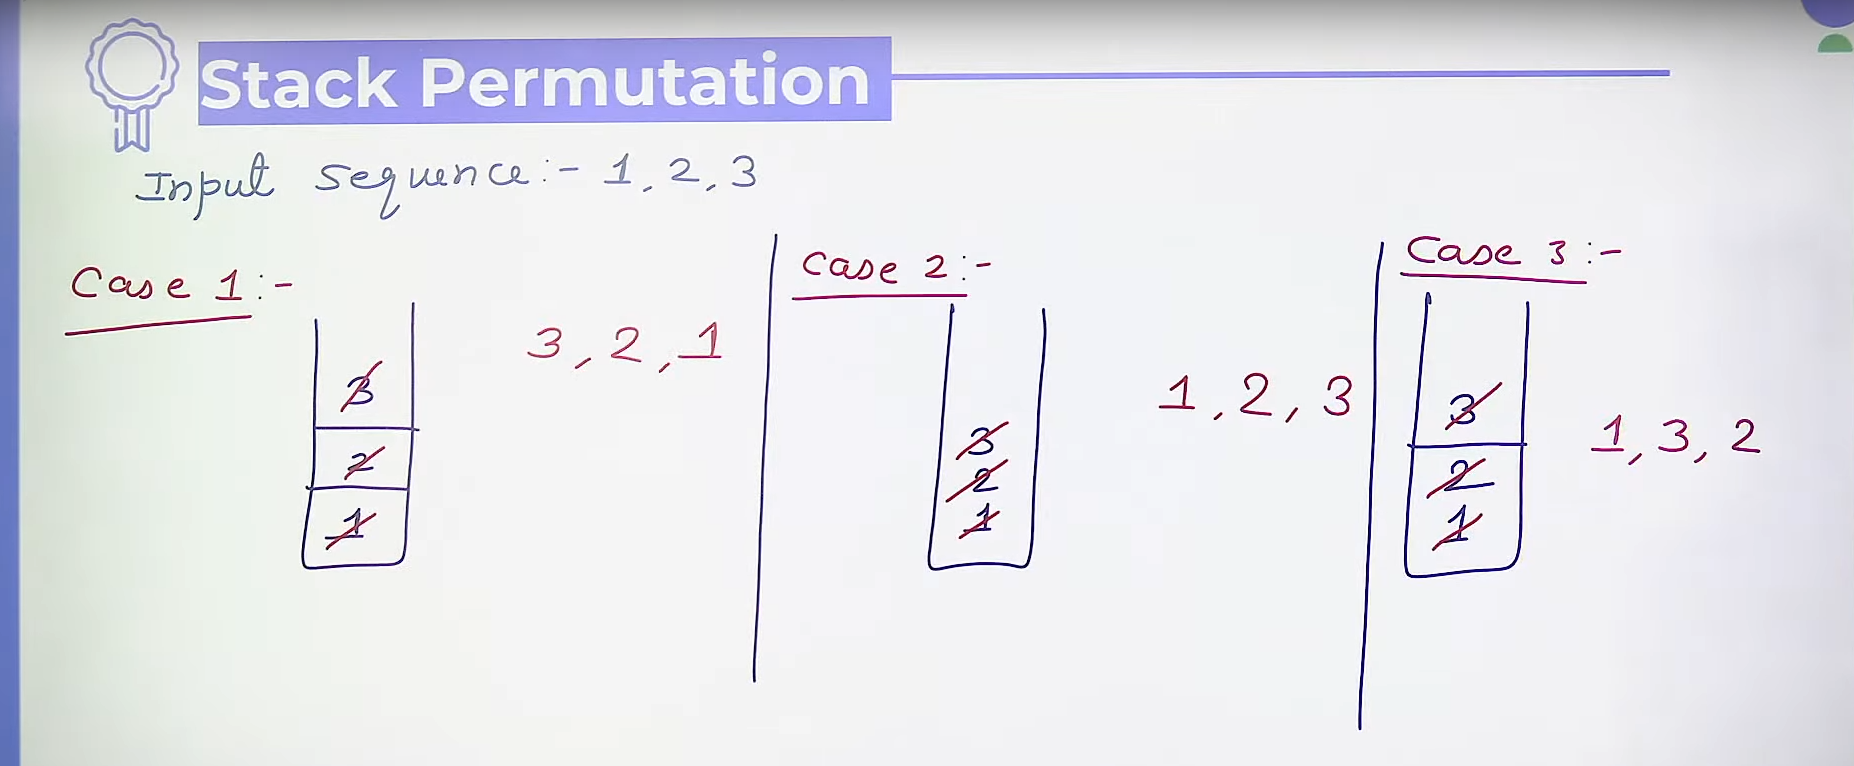 Stack Permutation
Input sequence:- 1, 2, 3
Case 1:-
3
2
1
3, 2, 1
Case 2:-
3
2
1
1, 2, 3
Case 3:-
3
2
1
1, 3, 2